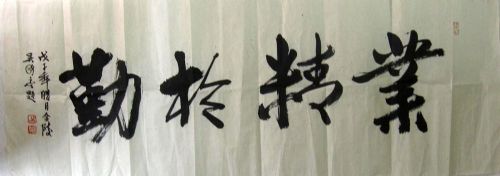 業精於勤
戊子年腊月金陵